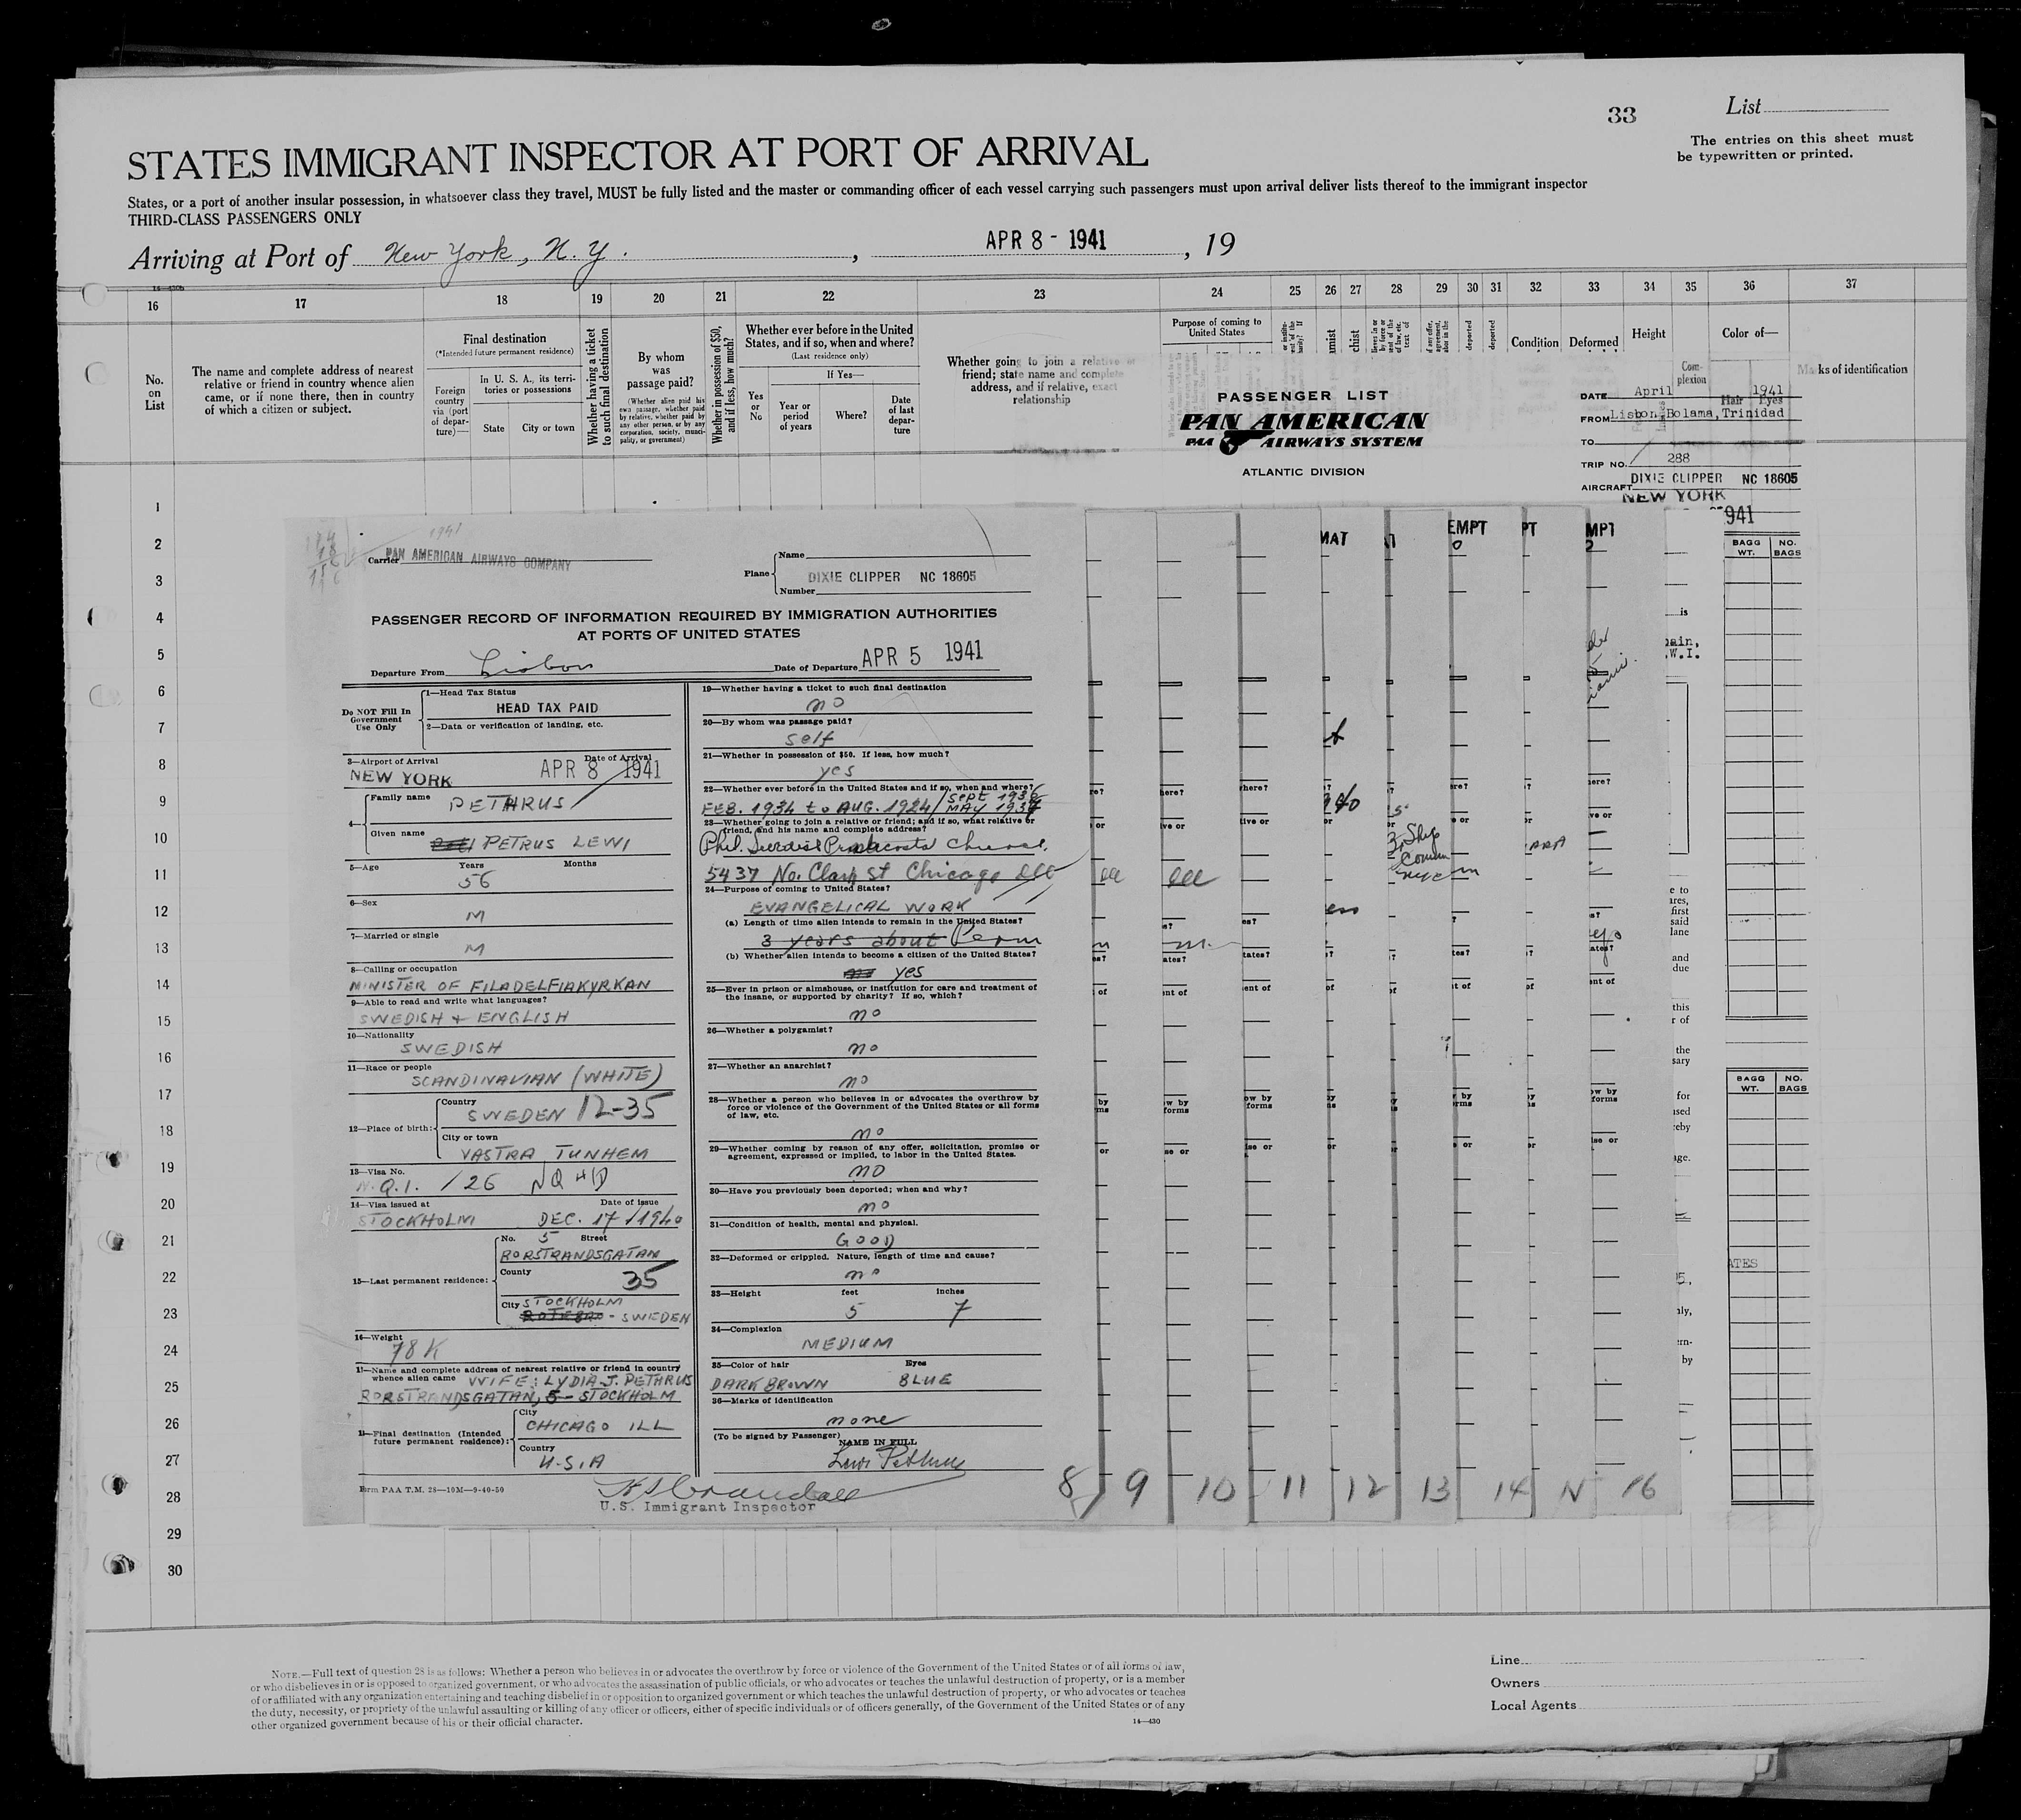 33
List
The entries on this sheet must
be typewritten or printed.
STATES IMMIGRANT INSPECTOR AT PORT OF ARRIVAL
States, or a port of another insular possession, in whatsoever class they travel, MUST be fully listed and the master or commanding officer of each vessel carrying such passengers must upon arrival deliver lists thereof to the immigrant inspector
THIRD-CLASS PASSENGERS ONLY
Arriving at Port of New York, N. Y. , APR 8 - 1941 , 19
16 17 18 19 20 21 22 23 24 25 26 27 28 29 30 31 32 33 34 35 36 37
No. on List
The name and complete address of nearest
relative or friend in country whence alien
came, or if none there, then in country
of which a citizen or subject.
Final destination
(*Intended future permanent residence)
Foreign
country
via (port
of depar-
ture)—
In U. S. A., its terri-
tories or possessions
State
City or town
Whether having a ticket
to such final destination
By whom
was
passage paid?
(Whether alien paid his
own passage, whether paid
by relative, whether paid by
any other person, or by any
corporation, society, munici-
pality, or government)
Whether in possession of $50,
and if less, how much?
Whether ever before in the United
States, and if so, when and where?
(Last residence only)
Yes
or
No
If Yes—
Year or
period
of years
Where?
Date
of last
depar-
ture
Whether going to join a relative or
friend; state name and complete
address, and if relative, exact
relationship
Purpose of coming to
United States
Condition
Deformed
Height
Com-
plexion
Color of—
Hair Eyes
Marks of identification
PASSENGER LIST
PAN AMERICAN
PAA AIRWAYS SYSTEM
ATLANTIC DIVISION
DATE April 1941
FROM Lisbon, Bolama, Trinidad
TO
TRIP NO. 288
AIRCRAFT DIXIE CLIPPER NC 18605
NEW YORK
1941
BAGG WT. NO. BAGS
1
2
3
4
5
6
7
8
9
10
11
12
13
14
15
16
17
18
19
20
21
22
23
24
25
26
27
28
29
30
1941
Carrier PAN AMERICAN AIRWAYS COMPANY
Plane Name
DIXIE CLIPPER NC 18605
Number
PASSENGER RECORD OF INFORMATION REQUIRED BY IMMIGRATION AUTHORITIES
AT PORTS OF UNITED STATES
Departure From Lisbon Date of Departure APR 5 1941
Do NOT Fill In
Government
Use Only
1—Head Tax Status
HEAD TAX PAID
2—Data or verification of landing, etc.
3—Airport of Arrival Date of Arrival
NEW YORK APR 8 1941
4— Family name PETHRUS
Given name PETRUS LEWI
5—Age Years Months
56
6—Sex
M
7—Married or single
M
8—Calling or occupation
MINISTER OF FILADELFIAKYRKAN
9—Able to read and write what languages?
SWEDISH + ENGLISH
10—Nationality
SWEDISH
11—Race or people
SCANDINAVIAN (WHITE)
12—Place of birth:
Country
SWEDEN 12-35
City or town
VASTRA TUNHEM
13—Visa No.
N.Q.I. 126 NQ HD
14—Visa issued at Date of issue
STOCKHOLM DEC. 17/1940
15—Last permanent residence:
No. 5 Street
RORSTRANDSGATAN
County
35
City STOCKHOLM
ROTEBRO - SWEDEN
16—Weight
78 K
17—Name and complete address of nearest relative or friend in country
whence alien came WIFE: LYDIA J. PETHRUS
RORSTRANDSGATAN, 5 - STOCKHOLM
18—Final destination (Intended
future permanent residence):
City
CHICAGO ILL
Country
U.S.A
Form PAA T.M. 28—10M—9-40-50
19—Whether having a ticket to such final destination
no
20—By whom was passage paid?
self
21—Whether in possession of $50. If less, how much?
yes
22—Whether ever before in the United States and if so, when and where?
FEB. 1934 to AUG. 1924/ Sept 1936 MAY 1937
23—Whether going to join a relative or friend; and if so, what relative or
friend, and his name and complete address?
Phil. Swedish Pentecostal Church,
5437 No. Clark St Chicago Ill
24—Purpose of coming to United States?
EVANGELICAL WORK
(a) Length of time alien intends to remain in the United States?
3 years about Perm
(b) Whether alien intends to become a citizen of the United States?
yes
25—Ever in prison or almshouse, or institution for care and treatment of
the insane, or supported by charity? If so, which?
no
26—Whether a polygamist?
no
27—Whether an anarchist?
no
28—Whether a person who believes in or advocates the overthrow by
force or violence of the Government of the United States or all forms
of law, etc.
no
29—Whether coming by reason of any offer, solicitation, promise or
agreement, expressed or implied, to labor in the United States.
no
30—Have you previously been deported; when and why?
no
31—Condition of health, mental and physical.
GOOD
32—Deformed or crippled. Nature, length of time and cause?
no
33—Height feet inches
5 7
34—Complexion
MEDIUM
35—Color of hair Eyes
DARK BROWN BLUE
36—Marks of identification
none
(To be signed by Passenger)
NAME IN FULL
Lewi Pethrus
U.S. Immigrant Inspector
8 9 10 11 12 13 14 N 16
BAGG WT. NO. BAGS
NOTE.—Full text of question 28 is as follows: Whether a person who believes in or advocates the overthrow by force or violence of the Government of the United States or of all forms of law,
or who disbelieves in or is opposed to organized government, or who advocates the assassination of public officials, or who advocates or teaches the unlawful destruction of property, or is a member
of or affiliated with any organization entertaining and teaching disbelief in or opposition to organized government or which teaches the unlawful destruction of property, or who advocates or teaches
the duty, necessity, or propriety of the unlawful assaulting or killing of any officer or officers, either of specific individuals or of officers generally, of the Government of the United States or of any
other organized government because of his or their official character.
14—430
Line
Owners
Local Agents